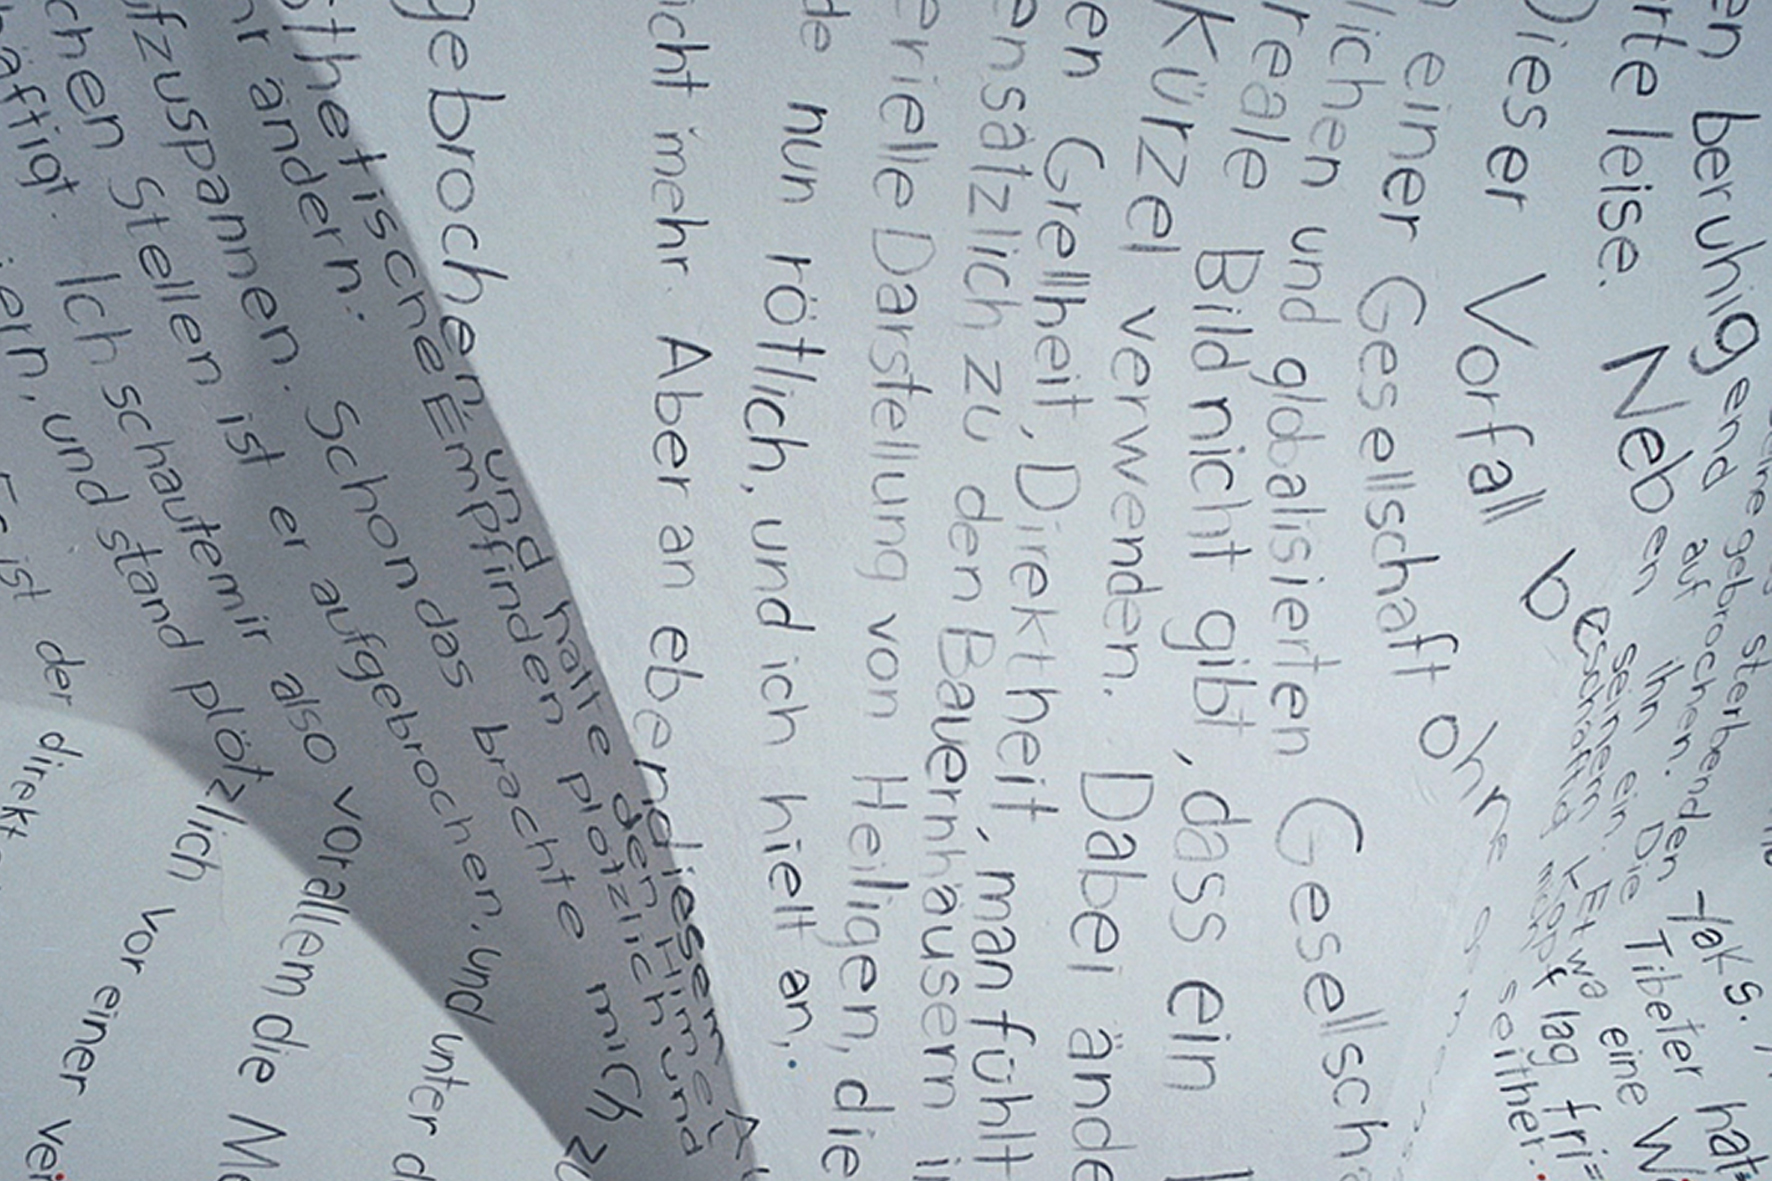 -Yaks.
Tibeter hat=
eine
lag fri=
seither.
sterbenden
gebrochen
auf ihn ein. Etwa
aufbrochen. Die
seinem Kopf
en beruhigend
rte leise. Neben
Dieser Vorfall beschäftigt mich
einer Gesellschaft ohne
lichen und globalisierten Gesellscha
reale Bild nicht gibt, dass ein
Kürzel verwenden. Dabei ände
en Grellheit, Direktheit, man fühlt
ensätzlich zu den Bauernhäusern i
erielle Darstellung von Heiligen, die
de nun rötlich, und ich hielt an,.
icht mehr. Aber an eben diesem
gebrochen, und hatte den Himmel
sthetische Empfinden plötzlich und
r ändern: Schon das brachte mich
ufzuspannen. ist er aufgebrochen, und unter d
chen Stellen also vor allem die M
äftigt. Ich schaute mir
ern, und stand plötzlich vor einer ve
ist der direkt